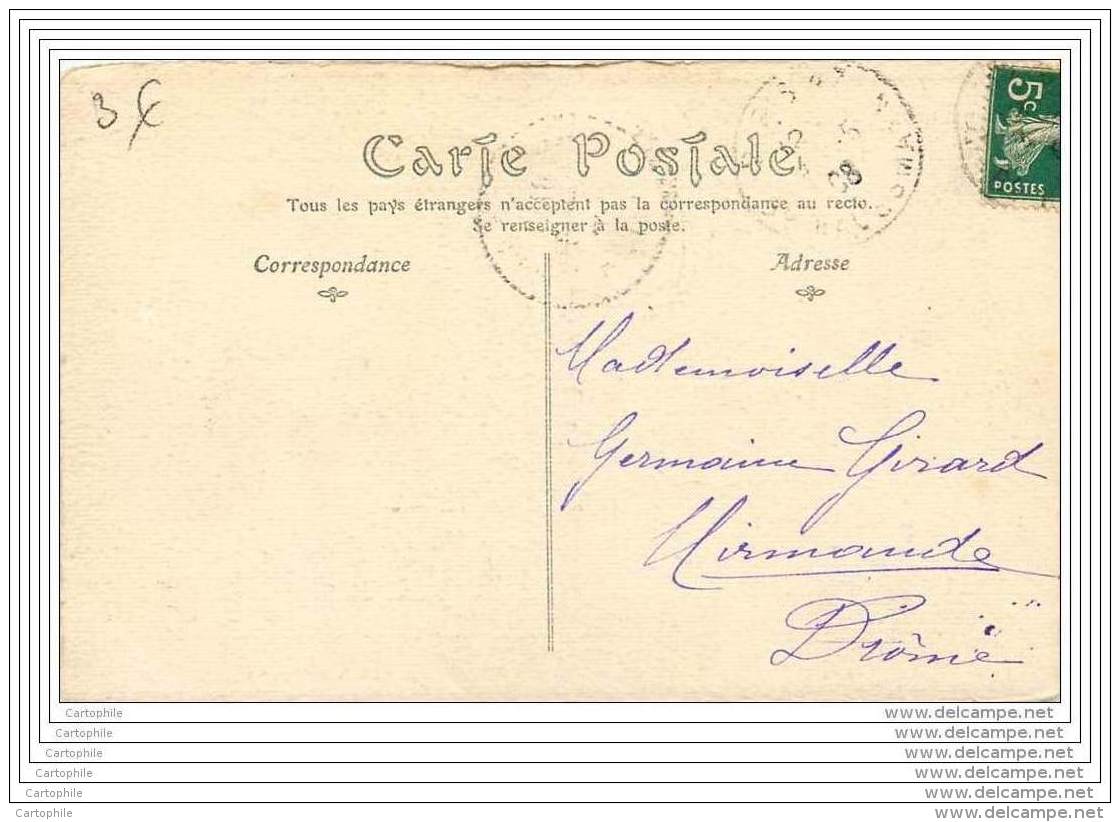 3 €
5c
POSTES
08
Carte Postale
Tous les pays étrangers n'acceptent pas la correspondance au recto.
Se renseigner à la poste.
Correspondance
Adresse
Mademoiselle
Germaine Girard
Mirmande
Drôme
Cartophile
www.delcampe.net
Cartophile
www.delcampe.net
Cartophile
www.delcampe.net
Cartophile
www.delcampe.net
Cartophile
www.delcampe.net
Cartophile
www.delcampe.net